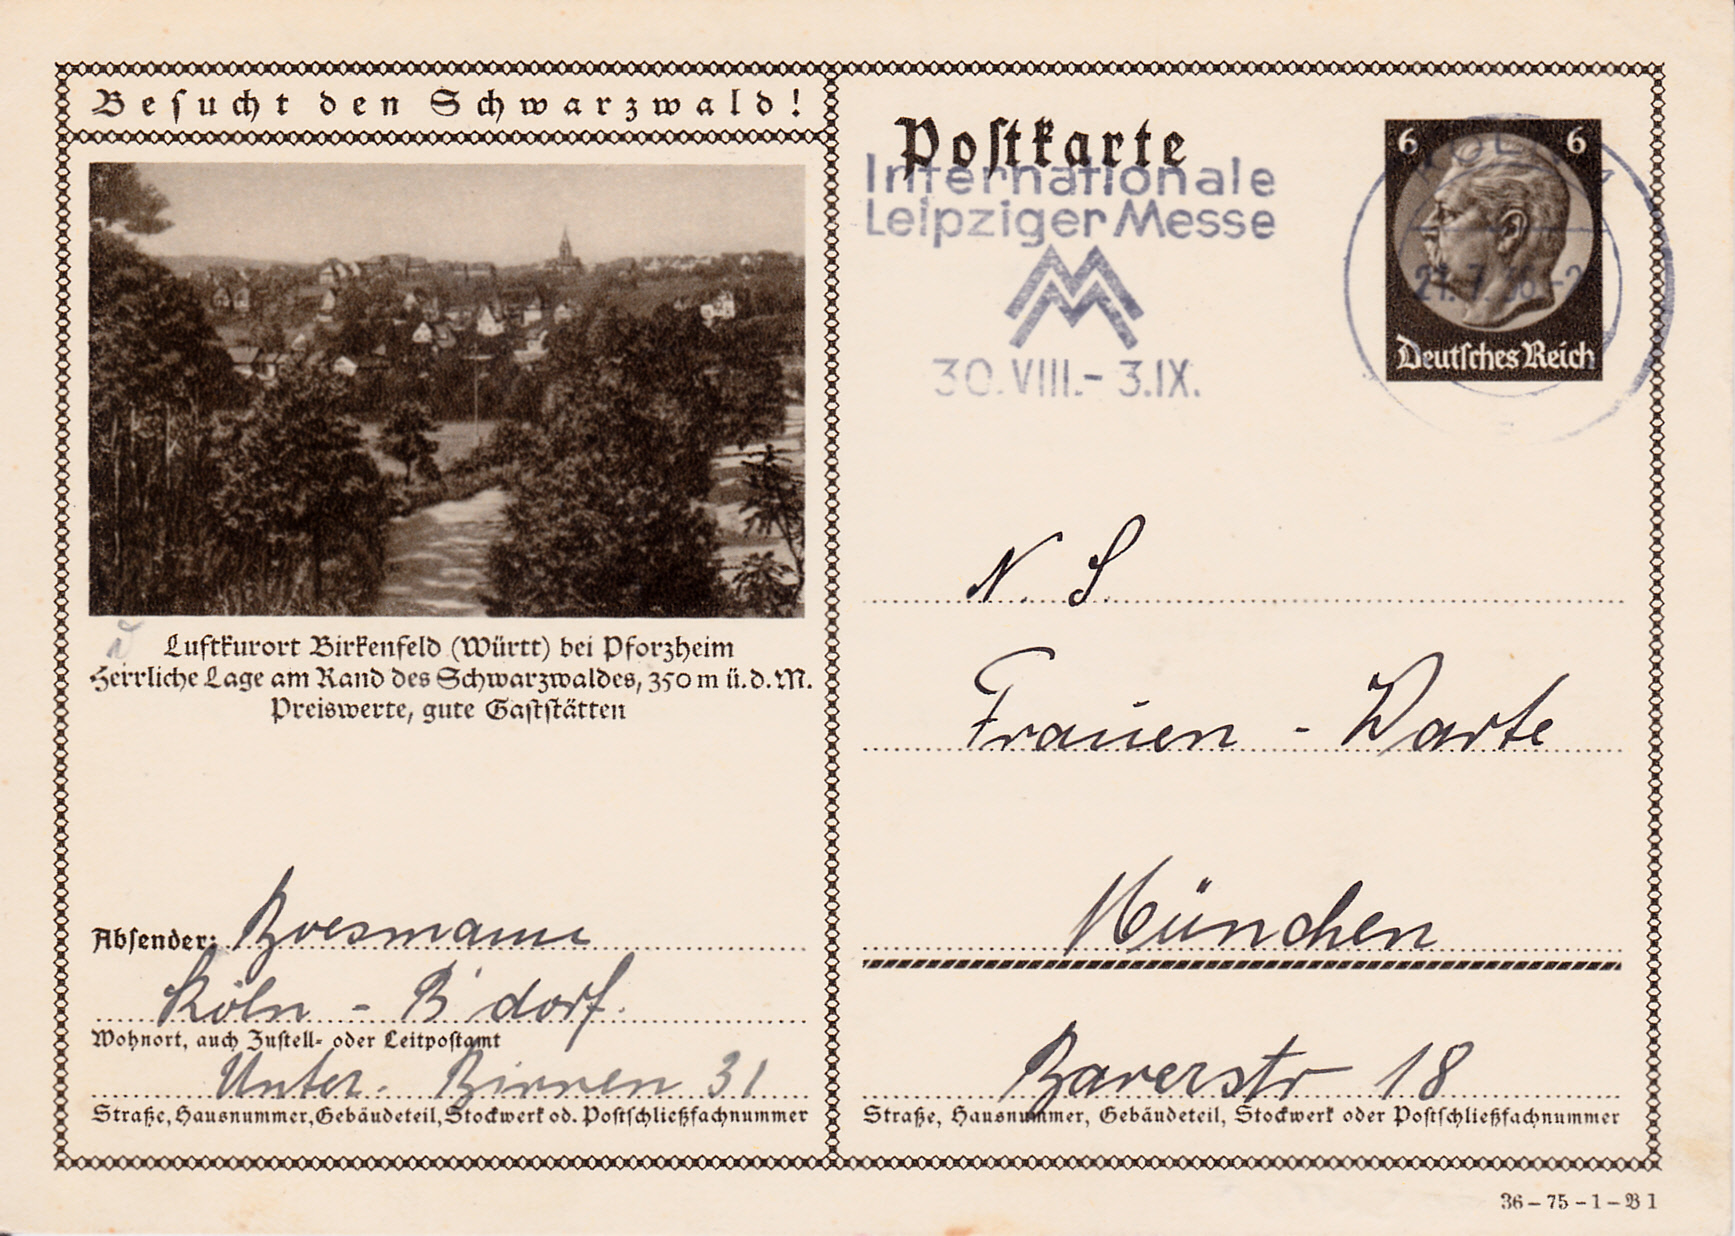 Besucht den Schwarzwald!
Luftkurort Birkenfeld (Württ) bei Pforzheim
Herrliche Lage am Rand des Schwarzwaldes, 350 m ü. d. M.
Preiswerte, gute Gaststätten
Absender: Boesmann
Köln - B'dorf.
Wohnort, auch Zustell- oder Leitpostamt
Unter. Birnen 31
Straße, Hausnummer, Gebäudeteil, Stockwerk od. Postschließfachnummer
Postkarte
Internationale
Leipziger Messe
30. VIII. - 3. IX.
6 6
21. 7. 36
Deutsches Reich
N. S.
Frauen - Warte
München
Barerstr 18
Straße, Hausnummer, Gebäudeteil, Stockwerk oder Postschließfachnummer
36 - 75 - 1 - B 1